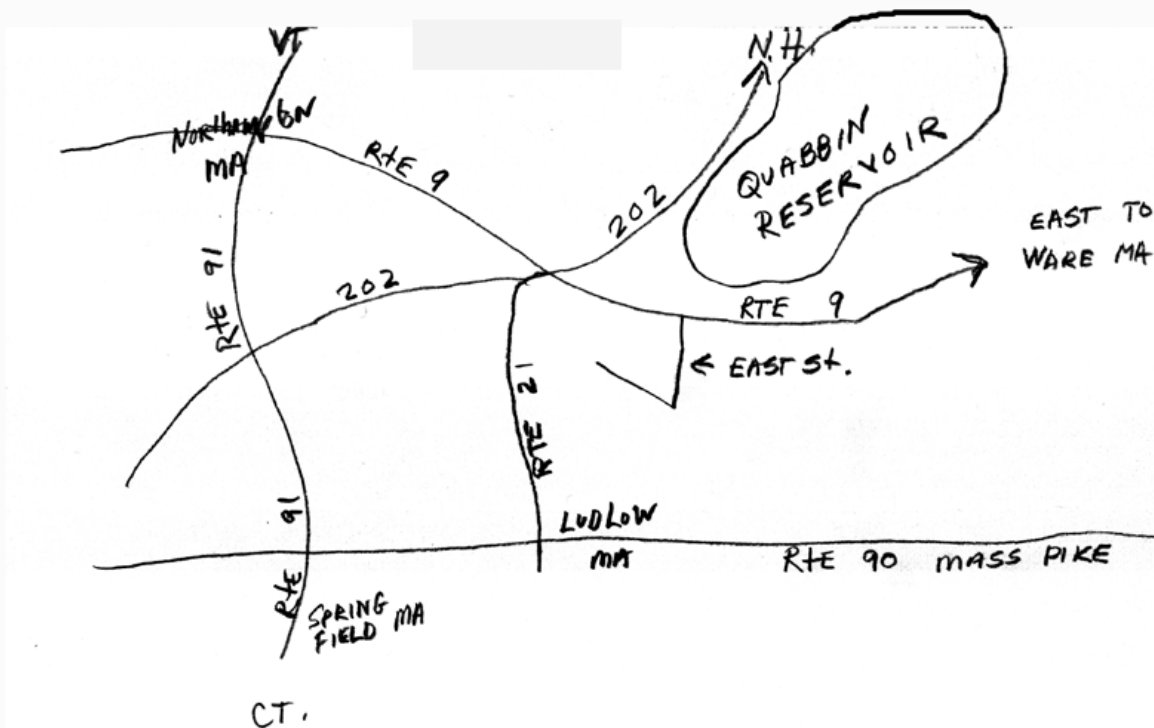 VT
N.H.
NORTHAMPTON
MA
RtE 9
202
QUABBIN
RESERVOIR
EAST TO
WARE MA
RtE 91
202
RTE 9
← EAST St.
RTE 21
91
LUDLOW
MA
RtE 90 MASS PIKE
RtE
SPRING
FIELD MA
CT.